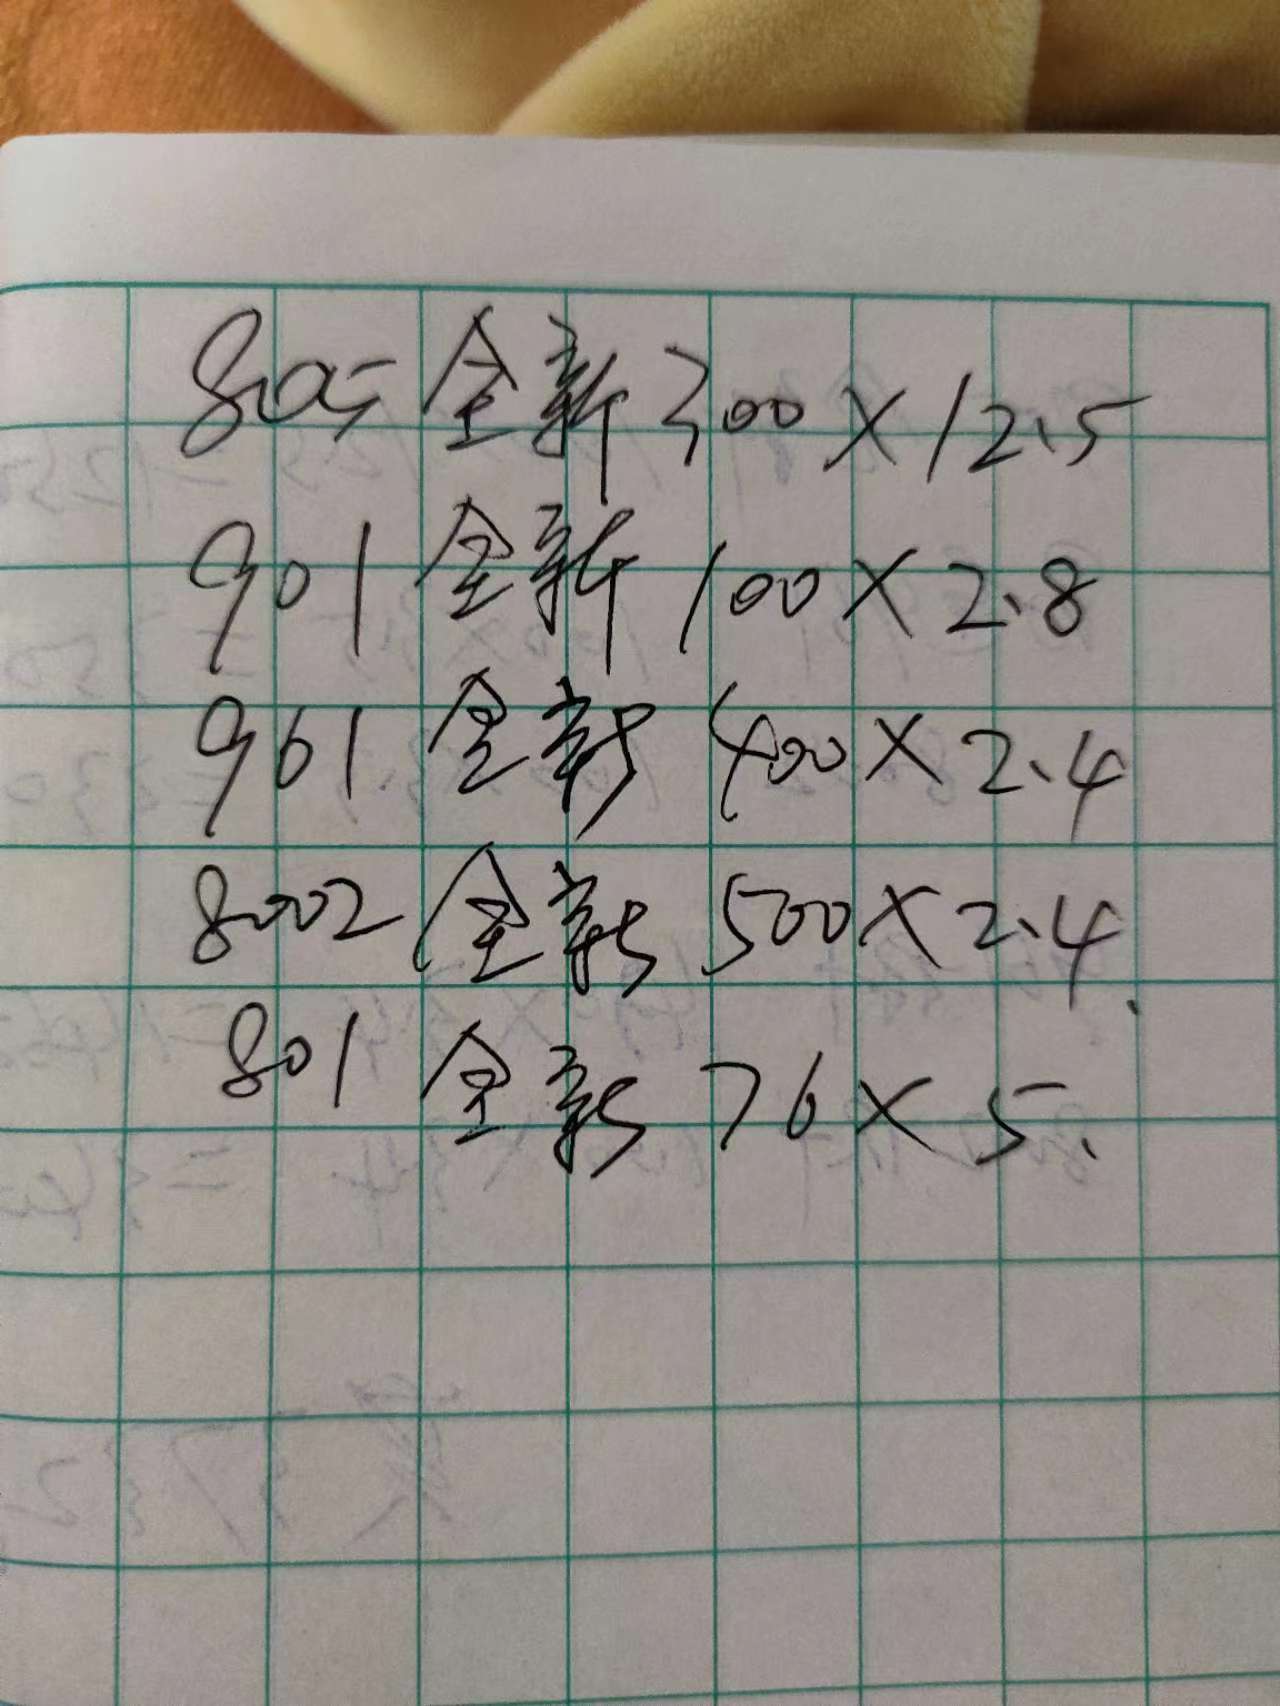 805全新300×12.5
901全新100×2.8
961全新400×2.4
8002全新500×2.4
801全新76×5.